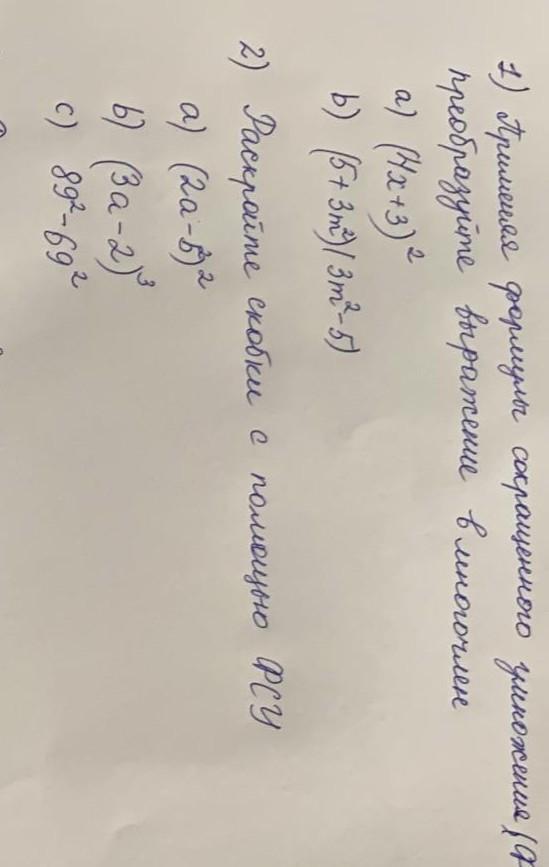 1) Применяя формулы сокращенного умножения (Ф
преобразуйте выражение в многочлен
a) (4x+3)²
b) (5+3m²)(3m²-5)
2) Раскройте скобки с помощью ФСУ
a) (2a-b²)²
b) (3a-2)³
c) 89²-69²